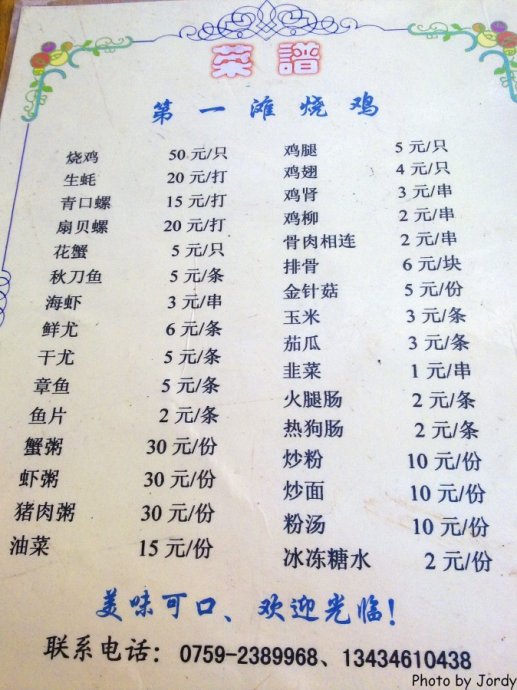 菜譜
第一滩烧鸡
烧鸡 50元/只
生蚝 20元/打
青口螺 15元/打
扇贝螺 20元/打
花蟹 5元/只
秋刀鱼 5元/条
海虾 3元/串
鲜尤 6元/条
干尤 5元/条
章鱼 5元/条
鱼片 2元/条
蟹粥 30元/份
虾粥 30元/份
猪肉粥 30元/份
油菜 15元/份
鸡腿 5元/只
鸡翅 4元/只
鸡肾 3元/串
鸡柳 2元/串
骨肉相连 2元/串
排骨 6元/块
金针菇 5元/份
玉米 3元/条
茄瓜 3元/条
韭菜 1元/串
火腿肠 2元/条
热狗肠 2元/条
炒粉 10元/份
炒面 10元/份
粉汤 10元/份
冰冻糖水 2元/份
美味可口、欢迎光临!
联系电话：0759-2389968、13434610438
Photo by Jordy